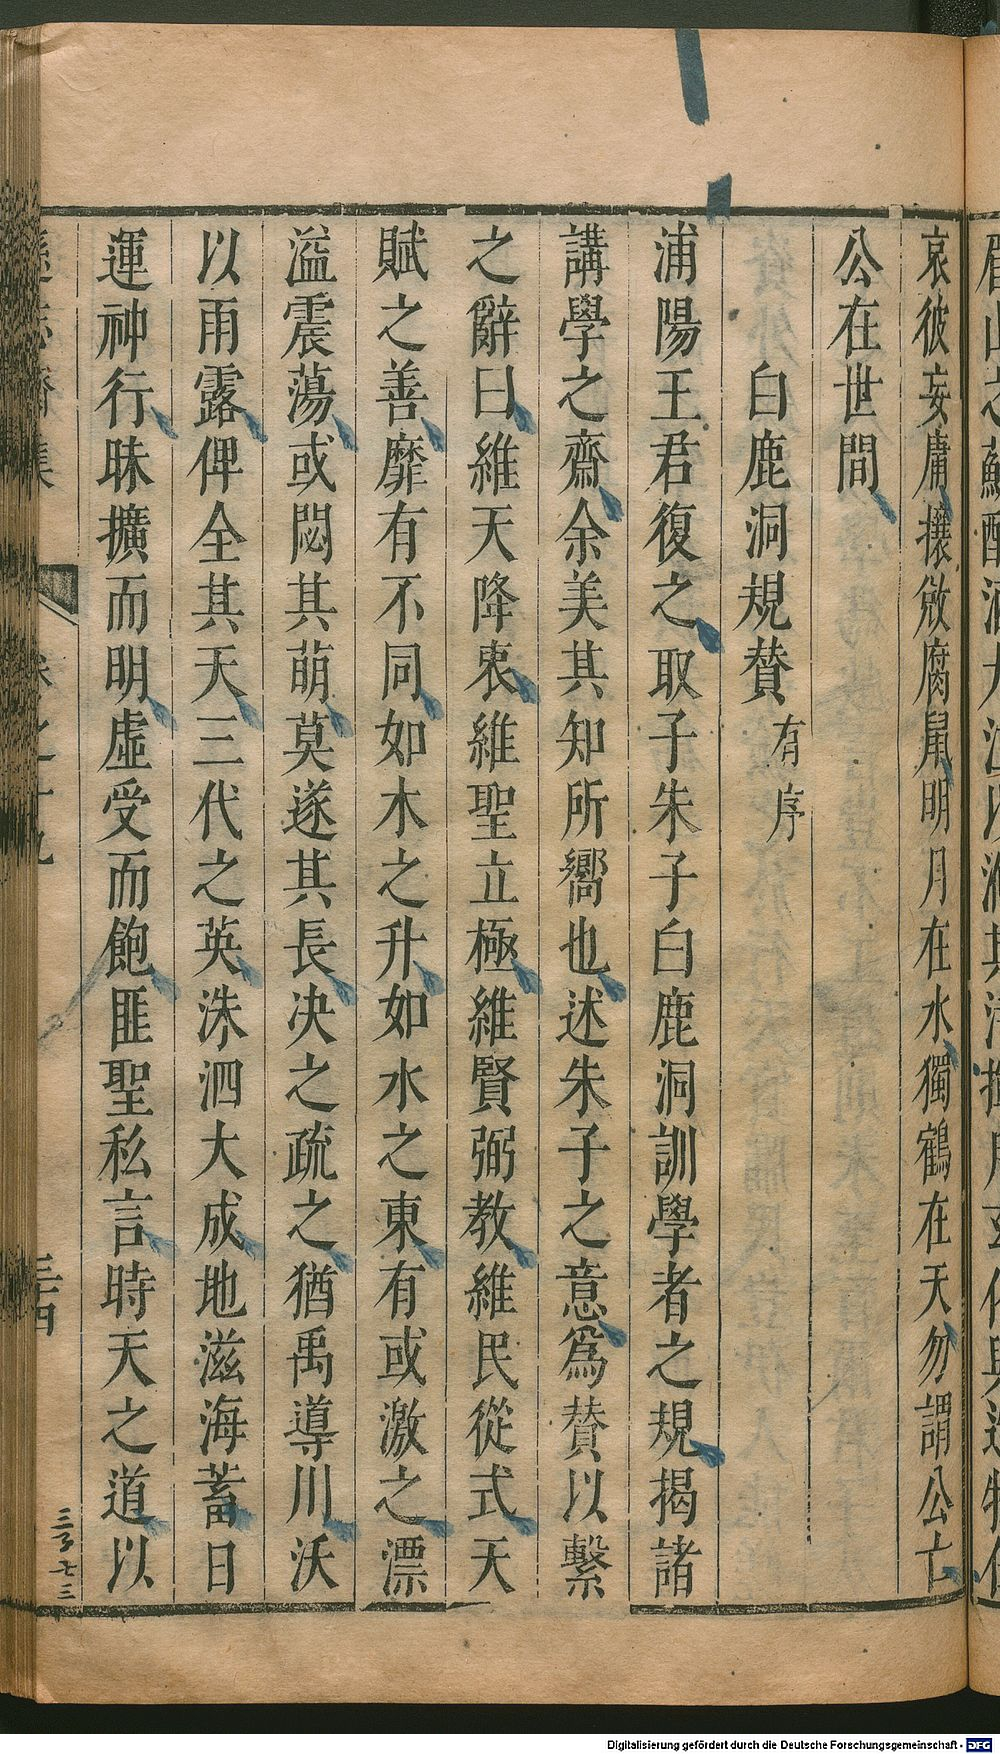 哀彼妄庸攘敓腐鼠明月在水獨鶴在天勿謂公亡
公在世間
白鹿洞規贊有序
浦陽王君復之取子朱子白鹿洞訓學者之規揭諸
講學之齋余美其知所嚮也述朱子之意爲贊以繫
之辭曰維天降衷維聖立極維賢弼教維民從式天
賦之善靡有不同如木之升如水之東有或激之漂
溢震蕩或悶其萌莫遂其長决之疏之猶禹導川沃
以雨露俾全其天三代之英洙泗大成地滋海蓄日
運神行昧擴而明虛受而飽匪聖私言時天之道以
卷之十九
三四
Digitalisierung gefördert durch die Deutsche Forschungsgemeinschaft - DFG